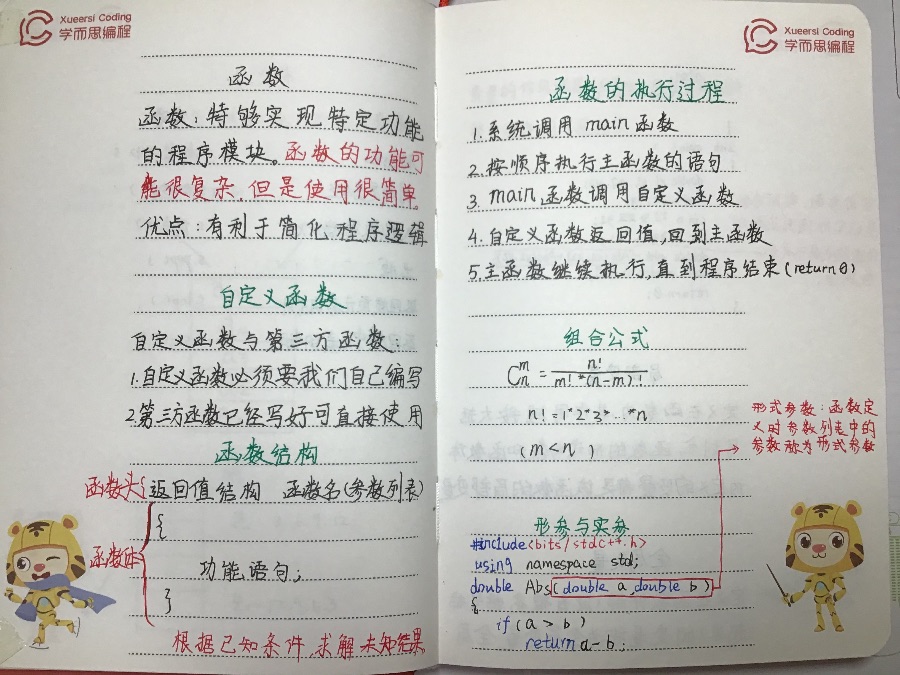 Xueersi Coding
学而思编程
函数
函数：特够实现特定功能
的程序模块。函数的功能可
能很复杂，但是使用很简单。
优点：有利于简化程序逻辑
自定义函数
自定义函数与第三方函数：
1.自定义函数必须要我们自己编写
2.第三方函数已经写好可直接使用
函数结构
函数头{返回值结构 函数名(参数列表)
{
函数体
功能语句;
}
根据已知条件，求解未知结果。
Xueersi Coding
学而思编程
函数的执行过程
1.系统调用 main 函数
2.按顺序执行主函数的语句
3.main函数调用自定义函数
4.自定义函数返回值,回到主函数
5.主函数继续执行,直到程序结束(return 0)
组合公式
C_n^m = n! / m!*(n-m)!
n!=1*2*3*…*n
(m<n)
形式参数：函数定
义时参数列表中的
参数称为形式参数
形参与实参
#include<bits/stdc++.h>
using namespace std;
double Abs(double a,double b)
{
if(a>b)
return a-b;